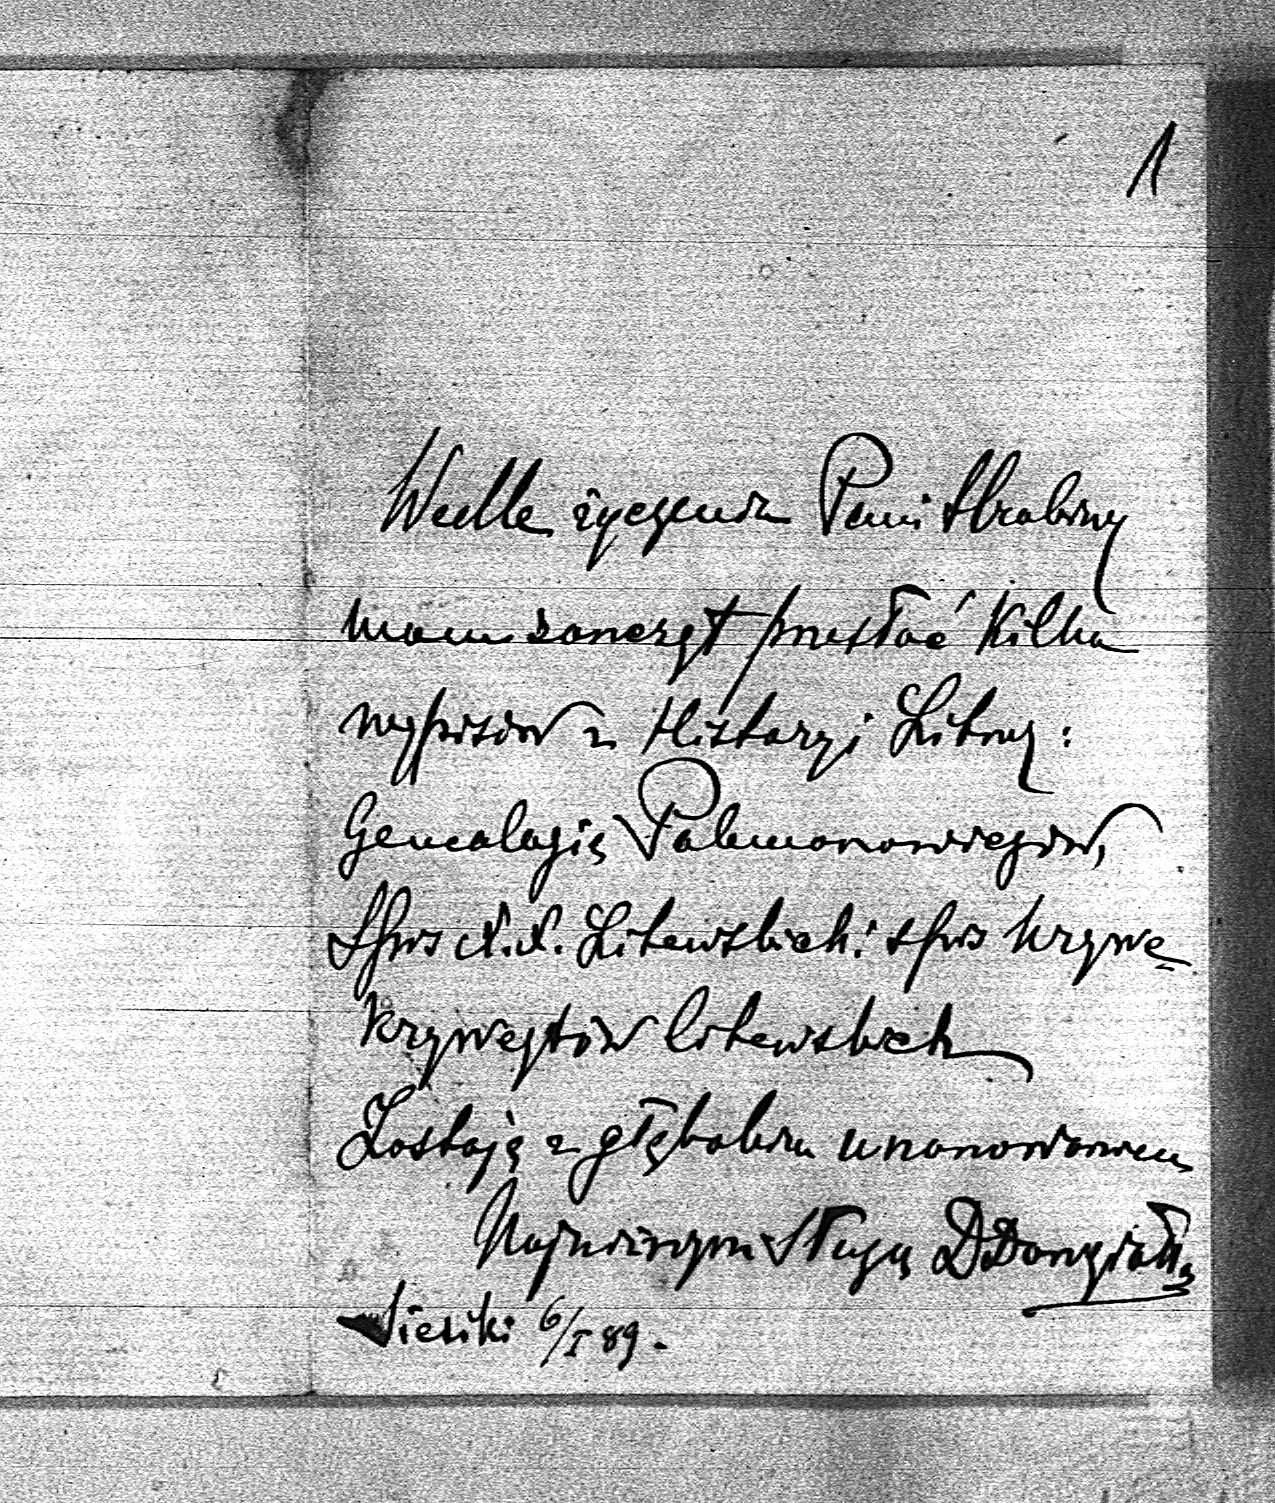 1
Wedle życzenia Pani Hrabiny
mam zaszczyt przesłać kilka
wypisów z Historyi Litwy:
Genealogię Palemonowiczów,
Spis X.X. Litewskich: spis krywe
krywejtów litewskich
Zostaję z głębokim uszanowaniem
Najniższym Sługą D Dowgiałło
Siesiki 6/I 89.